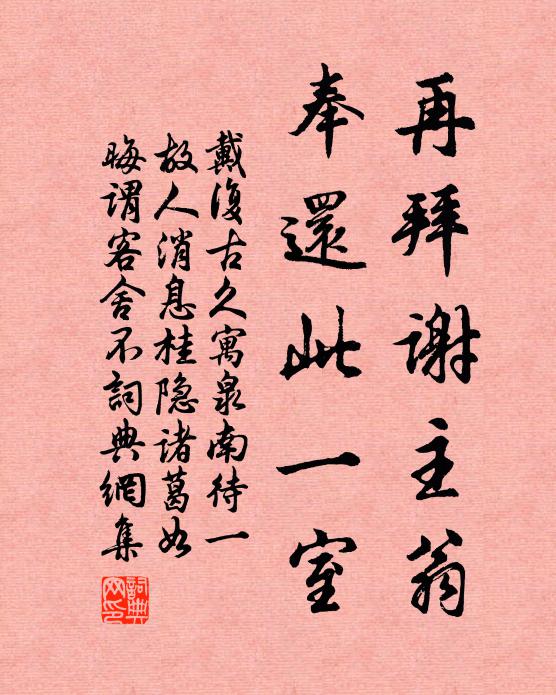 再拜谢主翁
奉還此一室
戴復古久寓泉南待一
故人消息桂隐诸葛如
晦谓客舍不詞典網集
詞典网印